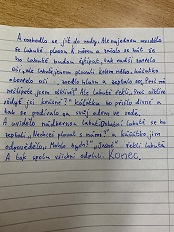 A rozhodlo se jít do vody. Ale najednou uvidělo
že labutě plavou k němu a začalo se bát že
ho labutě budou štípat, tak radši zavřelo
oči, ale labutě jenom plavali kolem něho. káčátko
otevřelo oči, zvedlo hlavu a zeptalo se: Proč mě
neštípete jsem ošklivé" Ale labutě řekli, Proč ošklivé
vždyť jsi krásné?" káčátku to přišlo divné a
tak se podívalo na svůj odraz ve vodě.
A uvidělo nádhernou labuť. Ostatní labutě se ho
zeptali „Nechceš plavat s námi?" a káčátko jim
odpovědělo „Mohlo bych?" „Jasně" řekli labutě
A tak spolu všichni odešli. KONEC.